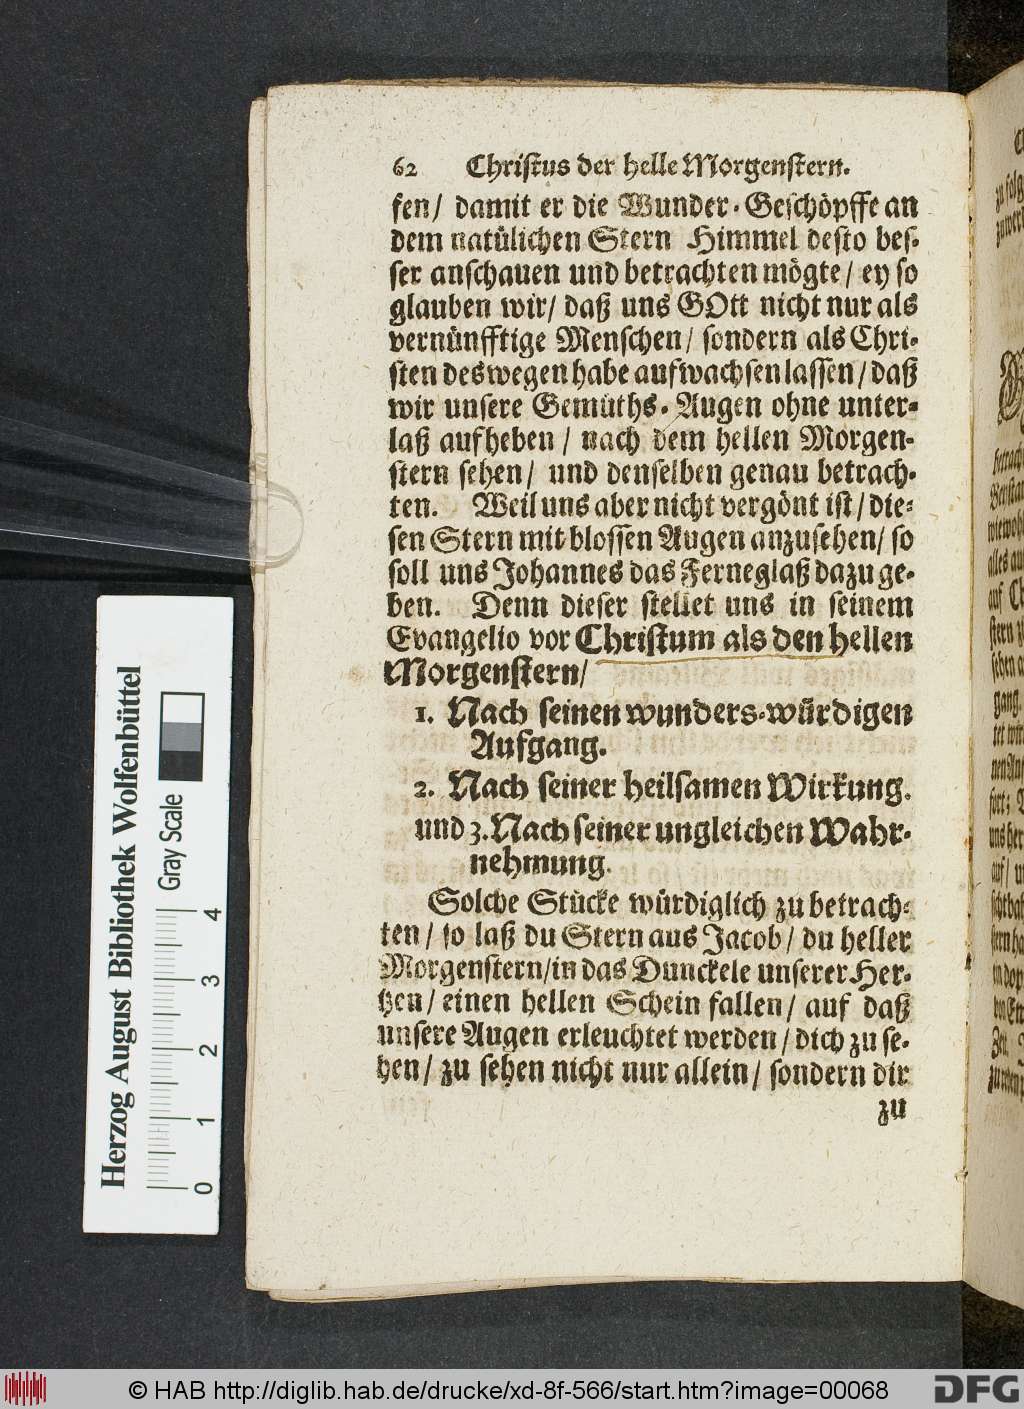 62 Christus der helle Morgenstern.
sen/ damit er die Wunder-Geschöpffe an
dem natülichen Stern Himmel desto bes-
ser anschauen und betrachten mögte/ ey so
glauben wir/ daß uns GOtt nicht nur als
vernünfftige Menschen/ sondern als Chri-
sten deswegen habe aufwachsen lassen/ daß
wir unsere Gemüths-Augen ohne unter-
laß aufheben/ nach dem hellen Morgen-
stern sehen/ und denselben genau betrach-
ten. Weil uns aber nicht vergönt ist/ die-
sen Stern mit blossen Augen anzusehen/ so
soll uns Johannes das Ferneglaß dazu ge-
ben. Denn dieser stellet uns in seinem
Evangelio vor Christum als den hellen
Morgenstern/
1. Nach seinen wunders-würdigen
Aufgang.
2. Nach seiner heilsamen Wirkung.
und 3. Nach seiner ungleichen Wahr-
nehmung.
Solche Stücke würdiglich zu betrach-
ten/ so laß du Stern aus Jacob/ du heller
Morgenstern/ in das Dunckele unserer Her-
tzen/ einen hellen Schein fallen/ auf daß
unsere Augen erleuchtet werden/ dich zu se-
hen/ zu sehen nicht nur allein/ sondern dir
zu
Herzog August Bibliothek Wolfenbüttel
Gray Scale
0 1 2 3 4
© HAB http://diglib.hab.de/drucke/xd-8f-566/start.htm?image=00068
DFG